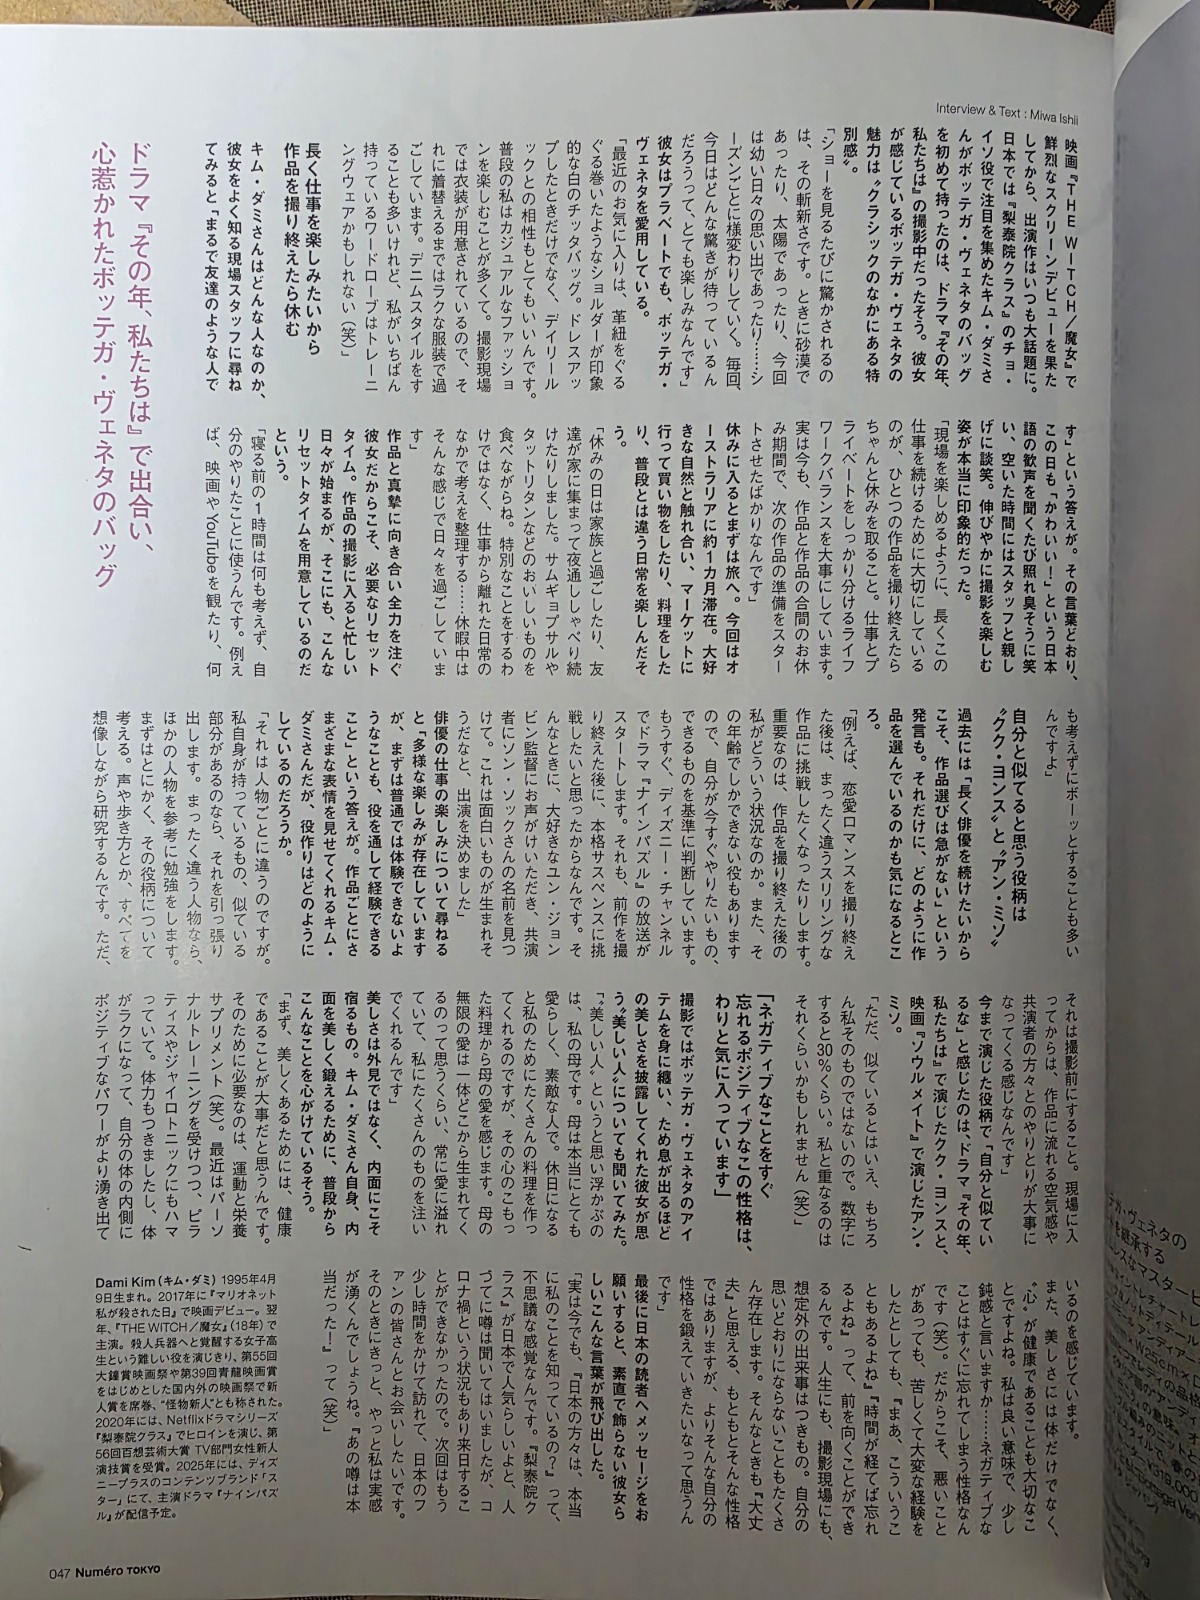 Interview & Text : Miwa Ishii
映画『THE WITCH/魔女』で
鮮烈なスクリーンデビューを果た
してから、出演作はいつも大話題に。
日本では『梨泰院クラス』のチョ・
イソ役で注目を集めたキム・ダミさ
んがボッテガ・ヴェネタのバッグ
を初めて持ったのは、ドラマ『その年、
私たちは』の撮影中だったそう。彼女
が感じているボッテガ・ヴェネタの
魅力は〝クラシックのなかにある特
別感〟。
「ショーを見るたびに驚かされるの
は、その斬新さです。ときに砂漠で
あったり、太陽であったり、今回
は幼い日々の思い出であったり……シ
ーズンごとに様変わりしていく。毎回、
今日はどんな驚きが待っているん
だろうって、とても楽しみなんです」
彼女はプラベートでも、ボッテガ・
ヴェネタを愛用している。
「最近のお気に入りは、革紐をぐる
ぐる巻いたようなショルダーが印象
的な白のチッタバッグ。ドレスアッ
プしたときだけでなく、デイリール
ックとの相性もとてもいいんです。
普段の私はカジュアルなファッショ
ンを楽しむことが多くて。撮影現場
では衣装が用意されているので、そ
れに着替えるまではラクな服装で過
ごしています。デニムスタイルをす
ることも多いけれど、私がいちばん
持っているワードローブはトレーニ
ングウェアかもしれない(笑)」
長く仕事を楽しみたいから
作品を撮り終えたら休む
キム・ダミさんはどんな人なのか、
彼女をよく知る現場スタッフに尋ね
てみると「まるで友達のような人で
ドラマ『その年、私たちは』で出合い、
心惹かれたボッテガ・ヴェネタのバッグ
す」という答えが。その言葉どおり、
この日も「かわいい!」という日本
語の歓声を聞くたび照れ臭そうに笑
い、空いた時間にはスタッフと親し
げに談笑。伸びやかに撮影を楽しむ
姿が本当に印象的だった。
「現場を楽しめるように、長くこの
仕事を続けるために大切にしている
のが、ひとつの作品を撮り終えたら
ちゃんと休みを取ること。仕事とプ
ライベートをしっかり分けるライフ
ワークバランスを大事にしています。
実は今も、作品と作品の合間のお休
み期間で、次の作品の準備をスター
トさせたばかりなんです」
休みに入るとまずは旅へ。今回はオ
ーストラリアに約1カ月滞在。大好
きな自然と触れ合い、マーケットに
行って買い物をしたり、料理をした
り、普段とは違う日常を楽しんだそ
う。
「休みの日は家族と過ごしたり、友
達が家に集まって夜通ししゃべり続
けたりしました。サムギョプサルや
タットリタンなどのおいしいものを
食べながらね。特別なことをするわ
けではなく、仕事から離れた日常の
なかで考えを整理する……休暇中は
そんな感じで日々を過ごしていま
す」
作品と真摯に向き合い全力を注ぐ
彼女だからこそ、必要なリセット
タイム。作品の撮影に入ると忙しい
日々が始まるが、そこにも、こんな
リセットタイムを用意しているのだ
という。
「寝る前の1時間は何も考えず、自
分のやりたことに使うんです。例え
ば、映画やYouTubeを観たり、何
も考えずにボーッとすることも多い
んですよ」
自分と似てると思う役柄は
〝クク・ヨンス〟と〝アン・ミソ〟
過去には「長く俳優を続けたいから
こそ、作品選びは急がない」という
発言も。それだけに、どのように作
品を選んでいるのかも気になるとこ
ろ。
「例えば、恋愛ロマンスを撮り終え
た後は、まったく違うスリリングな
作品に挑戦したくなったりします。
重要なのは、作品を撮り終えた後の
私がどういう状況なのか。また、そ
の年齢でしかできない役もあります
ので、自分が今すぐやりたいもの、
できるものを基準に判断しています。
もうすぐ、ディズニー・チャンネル
でドラマ『ナインパズル』の放送が
スタートします。それも、前作を撮
り終えた後に、本格サスペンスに挑
戦したいと思ったからなんです。そ
んなときに、大好きなユン・ジョン
ビン監督にお声がけいただき、共演
者にソン・ソックさんの名前を見つ
けて。これは面白いものが生まれそ
うだなと、出演を決めました」
俳優の仕事の楽しみについて尋ねる
と「多様な楽しみが存在しています
が、まずは普通では体験できないよ
うなことも、役を通して経験できる
こと」という答えが。作品ごとにさ
まざまな表情を見せてくれるキム・
ダミさんだが、役作りはどのように
しているのだろうか。
「それは人物ごとに違うのですが。
私自身が持っているもの、似ている
部分があるのなら、それを引っ張り
出します。まったく違う人物なら、
ほかの人物を参考に勉強をします。
まずはとにかく、その役柄について
考える。声や歩き方とか、すべてを
想像しながら研究するんです。ただ、
それは撮影前にすること。現場に入
ってからは、作品に流れる空気感や
共演者の方々とのやりとりが大事に
なってくる感じなんです」
今まで演じた役柄で〝自分と似てい
るな〟と感じたのは、ドラマ『その年、
私たちは』で演じたクク・ヨンスと、
映画『ソウルメイト』で演じたアン・
ミソ。
「ただ、似ているとはいえ、もちろ
ん私そのものではないので。数字に
すると30％くらい。私と重なるのは
それくらいかもしれません(笑)」
「ネガティブなことをすぐ
忘れるポジティブなこの性格は、
わりと気に入っています」
撮影ではボッテガ・ヴェネタのアイ
テムを身に纏い、ため息が出るほど
の美しさを披露してくれた彼女が思
う〝美しい人〟についても聞いてみた。
「〝美しい人〟というと思い浮かぶの
は、私の母です。母は本当にとても
愛らしく、素敵な人で。休日になる
と私のためにたくさんの料理を作っ
てくれるのですが、その心のこもっ
た料理から母の愛を感じます。母の
無限の愛は一体どこから生まれてく
るのって思うくらい、常に愛に溢れ
ていて、私にたくさんのものを注い
でくれるんです」
美しさは外見ではなく、内面にこそ
宿るもの。キム・ダミさん自身、内
面を美しく鍛えるために、普段から
こんなことを心がけているそう。
「まず、美しくあるためには、健康
であることが大事だと思うんです。
そのために必要なのは、運動と栄養
サプリメント(笑)。最近はパーソ
ナルトレーニングを受けつつ、ピラ
ティスやジャイロトニックにもハマ
っていて。体力もつきましたし、体
がラクになって、自分の体の内側に
ポジティブなパワーがより湧き出て
いるのを感じています。
また、美しさには体だけでなく、
〝心〟が健康であることも大切なこ
とですよね。私は良い意味で、少し
鈍感と言いますか……ネガティブな
ことはすぐに忘れてしまう性格なん
です(笑)。だからこそ、悪いこと
があっても、苦しくて大変な経験を
したとしても、『まあ、こういうこ
ともあるよね』『時間が経てば忘れ
るよね』って、前を向くことができ
るんです。人生にも、撮影現場にも、
想定外の出来事はつきもの。自分の
思いどおりにならないこともたくさ
ん存在します。そんなときも『大丈
夫』と思える、もともとそんな性格
ではありますが、よりそんな自分の
性格を鍛えていきたいなって思うん
です」
最後に日本の読者へメッセージをお
願いすると、素直で飾らない彼女ら
しいこんな言葉が飛び出した。
「実は今でも、『日本の方々は、本当
に私のことを知っているの?』って、
不思議な感覚なんです。『梨泰院ク
ラス』が日本で人気らしいよと、人
づてに噂は聞いてはいましたが、コ
ロナ禍という状況もあり来日するこ
とができなかったので。次回はもう
少し時間をかけて訪れて、日本のフ
ァンの皆さんとお会いしたいです。
そのときにきっと、やっと私は実感
が湧くんでしょうね。『あの噂は本
当だった!』って(笑)」
Dami Kim(キム・ダミ) 1995年4月
9日生まれ。2017年に『マリオネット
私が殺された日』で映画デビュー。翌
年、『THE WITCH/魔女』(18年)で
主演。殺人兵器へと覚醒する女子高
生という難しい役を演じきり、第55回
大鐘賞映画祭や第39回青龍映画賞
をはじめとした国内外の映画祭で新
人賞を席巻、“怪物新人”とも称された。
2020年には、Netflixドラマシリーズ
『梨泰院クラス』でヒロインを演じ、第
56回百想芸術大賞 TV部門女性新人
演技賞を受賞。2025年には、ディズ
ニープラスのコンテンツブランド「ス
ター」にて、主演ドラマ『ナインパズ
ル』が配信予定。
047 Numéro TOKYO